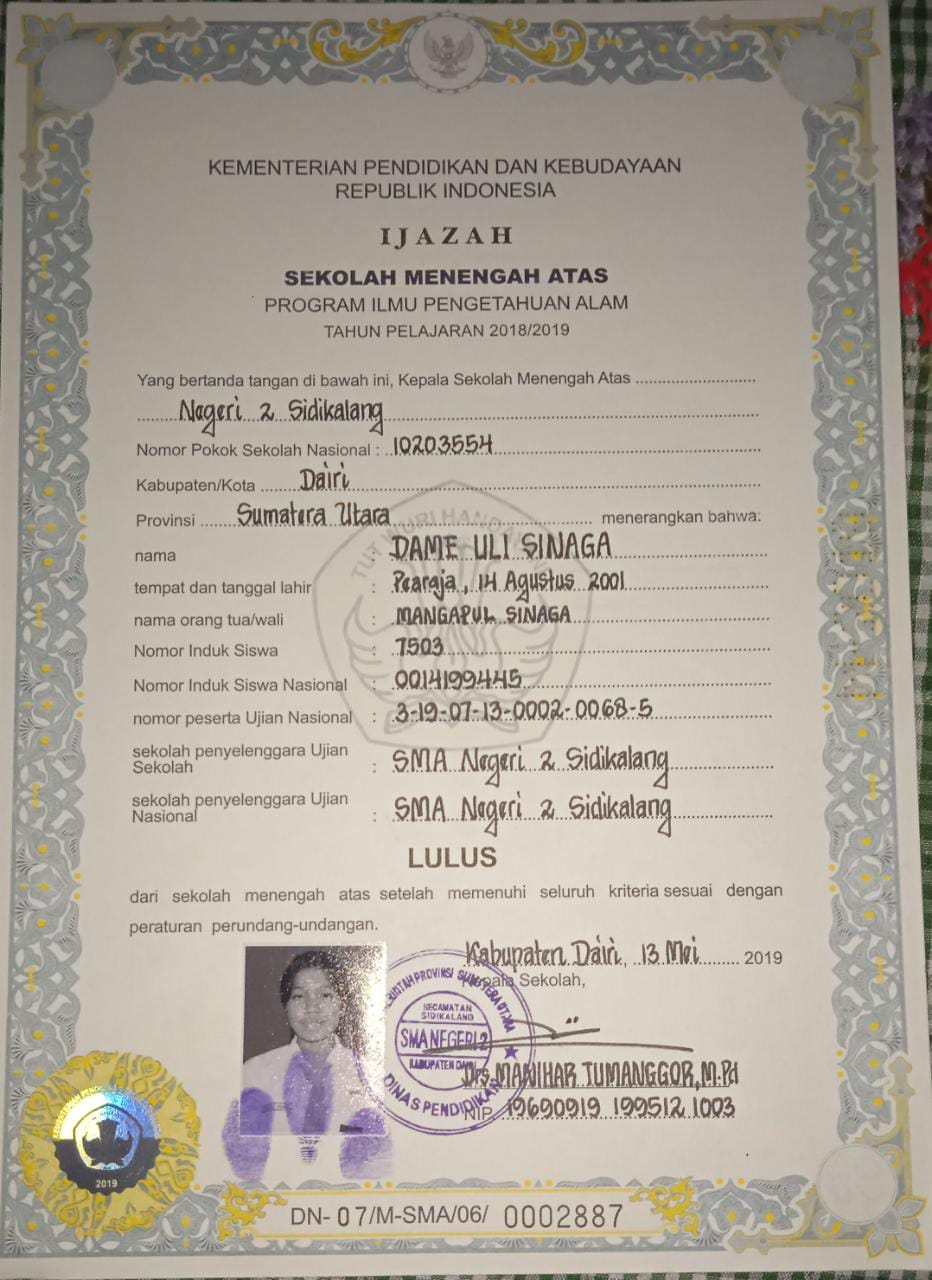 KEMENTERIAN PENDIDIKAN DAN KEBUDAYAAN
REPUBLIK INDONESIA
IJAZAH
SEKOLAH MENENGAH ATAS
PROGRAM ILMU PENGETAHUAN ALAM
TAHUN PELAJARAN 2018/2019
Yang bertanda tangan di bawah ini, Kepala Sekolah Menengah Atas
Negeri 2 Sidikalang
Nomor Pokok Sekolah Nasional : 10203554
Kabupaten/Kota Dairi
Provinsi Sumatera Utara menerangkan bahwa:
nama : DAME ULI SINAGA
tempat dan tanggal lahir : Pearaja, 14 Agustus 2001
nama orang tua/wali : MANGAPUL SINAGA
Nomor Induk Siswa : 7503
Nomor Induk Siswa Nasional : 0014199445
nomor peserta Ujian Nasional : 3-19-07-13-0002-0068-5
sekolah penyelenggara Ujian
Sekolah : SMA Negeri 2 Sidikalang
sekolah penyelenggara Ujian
Nasional : SMA Negeri 2 Sidikalang
LULUS
dari sekolah menengah atas setelah memenuhi seluruh kriteria sesuai dengan
peraturan perundang-undangan.
Kabupaten Dairi, 13 Mei 2019
Kepala Sekolah,
PROVINSI SUMATERA UTARA
KECAMATAN
SIDIKALANG
SMA NEGERI 2
KABUPATEN DAIRI
DINAS PENDIDIKAN
Drs. MANIHAR TUMANGGOR, M.Pd
NIP. 19690919 199512 1003
TUT WURI HANDAYANI
2019
DN-07/M-SMA/06/ 0002887